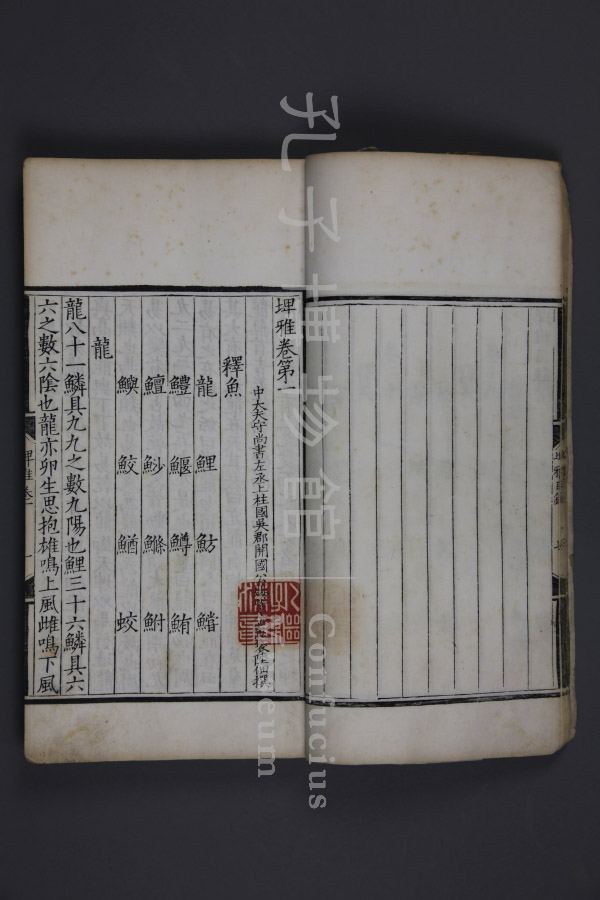 埤雅卷第一
中大夫守尚書左丞上柱國吳郡開國公陸佃撰
釋魚
龍 鯉 魴 鱨
鱧 鰋 鱒 鮪
鱣 魦 鰷 鮒
鰅 鮫 鰌 蛟
龍
龍八十一鱗具九九之數九陽也鯉三十六鱗具六
六之數六陰也龍亦卵生思抱雄鳴上風雌鳴下風
埤雅 卷一
一
孔子博物館
Confucius Museum